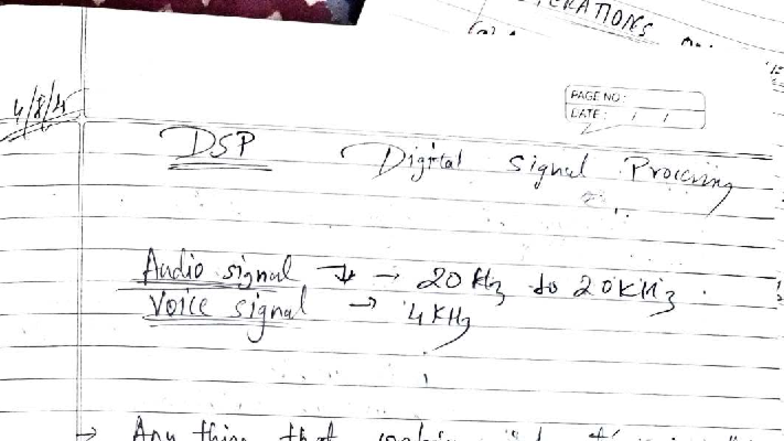 ERATIONS
PAGE NO:
DATE: / /
4/8/4
DSP Digital Signal Procesing
Audio signal → 20 Hz to 20KHz.
Voice signal → 4KHz
→ Any thing that